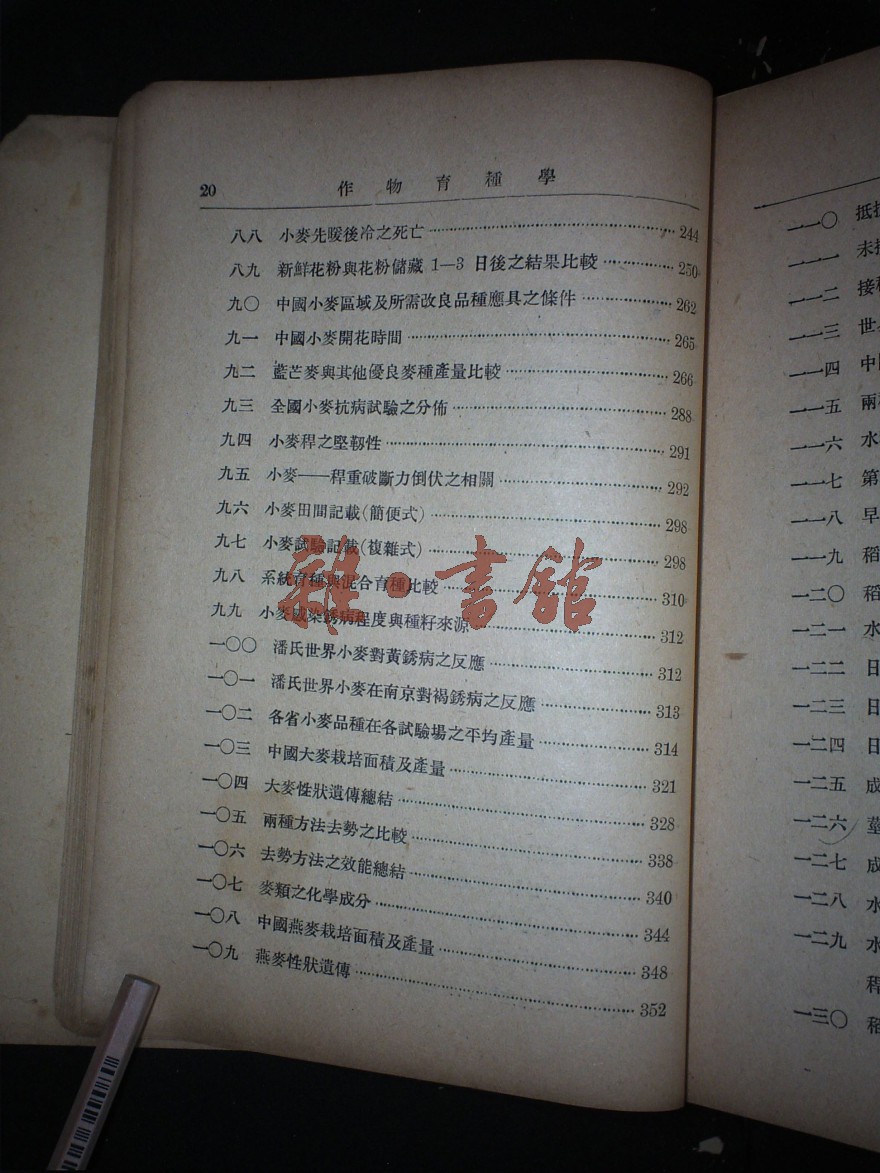 20 作物育種學
八八 小麥先暖後冷之死亡 244
八九 新鮮花粉與花粉儲藏 1—3 日後之結果比較 250
九〇 中國小麥區域及所需改良品種應具之條件 262
九一 中國小麥開花時間 265
九二 藍芒麥與其他優良麥種產量比較 266
九三 全國小麥抗病試驗之分佈 288
九四 小麥稈之堅韌性 291
九五 小麥——稈重破斷力倒伏之相關 292
九六 小麥田間記載(簡便式) 298
九七 小麥試驗記載(複雜式) 298
九八 系統育種與混合育種比較 310
九九 小麥感染銹病程度與種籽來源 312
一〇〇 潘氏世界小麥對黃銹病之反應 312
一〇一 潘氏世界小麥在南京對褐銹病之反應 313
一〇二 各省小麥品種在各試驗場之平均產量 314
一〇三 中國大麥栽培面積及產量 321
一〇四 大麥性狀遺傳總結 328
一〇五 兩種方法去勢之比較 338
一〇六 去勢方法之效能總結 340
一〇七 麥類之化學成分 344
一〇八 中國燕麥栽培面積及產量 348
一〇九 燕麥性狀遺傳 352
雜·書館
一一〇 抵
一一一 未
一一二 接
一一三 世
一一四 中
一一五 兩
一一六 水
一一七 第
一一八 早
一一九 稻
一二〇 稻
一二一 水
一二二 日
一二三 日
一二四 日
一二五 成
一二六
一二七 成
一二八 水
一二九 水
稈
一三〇 稻